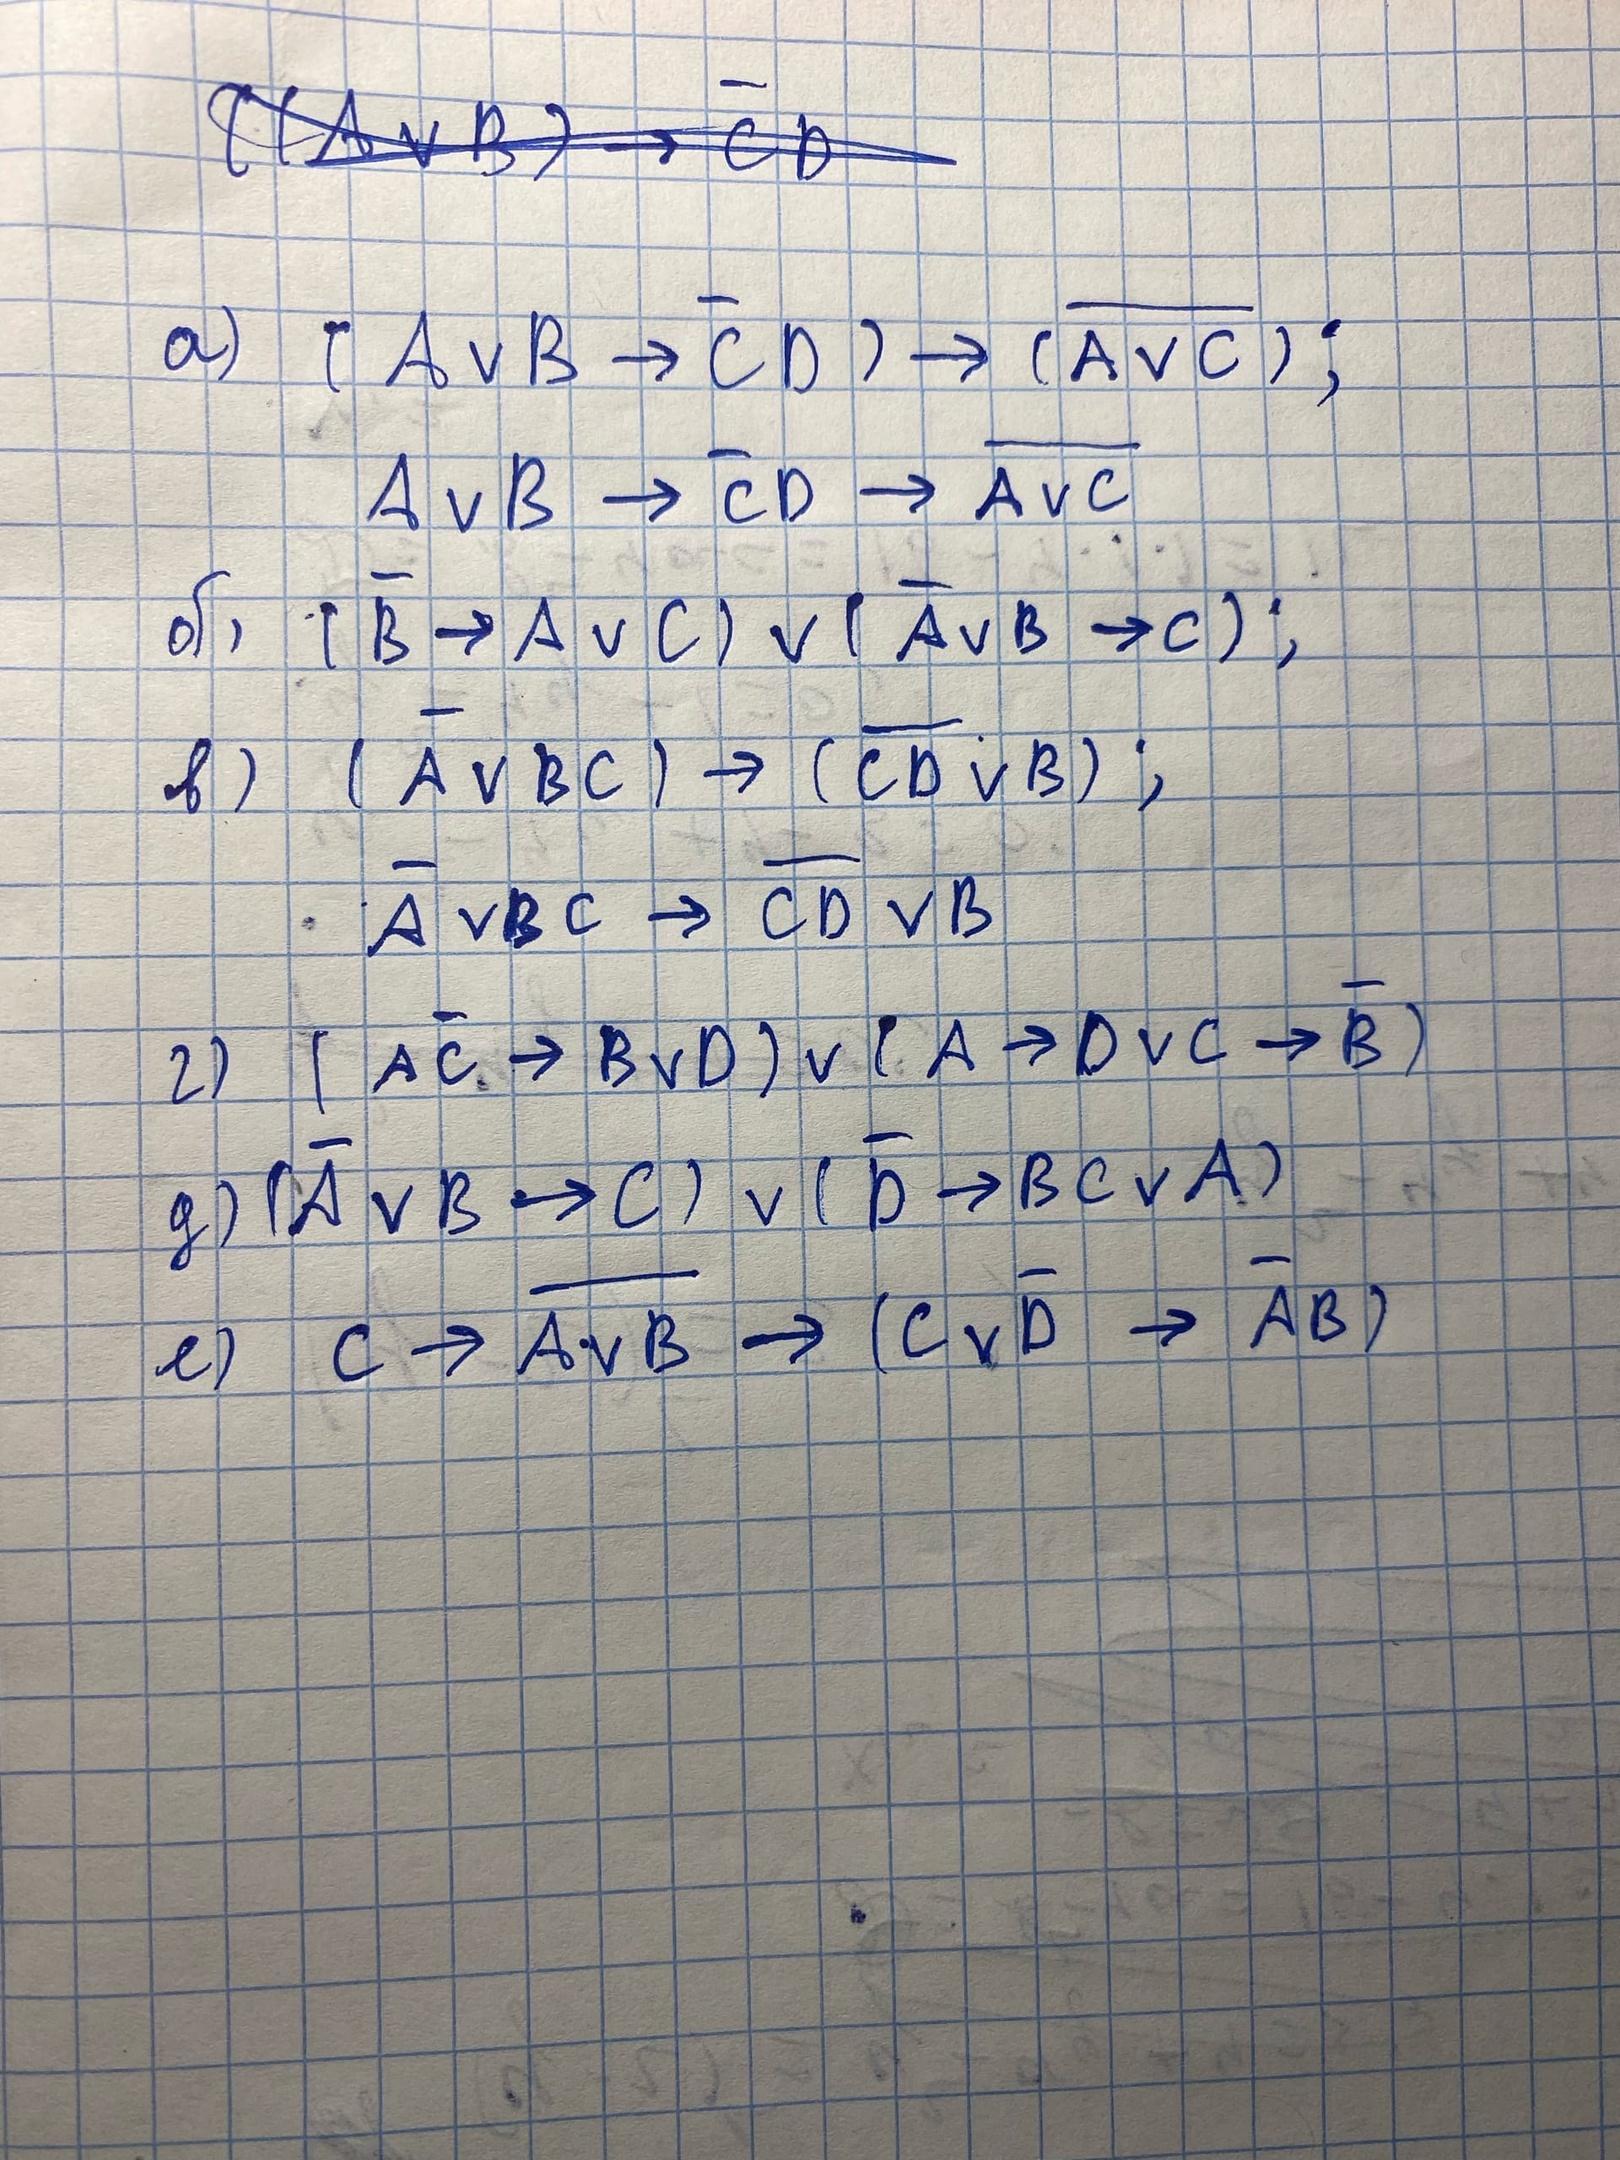 ((A∨B) → C̅D
а) (A∨B → C̅D) → (A̅∨̅C̅);
A∨B → C̅D → A̅∨̅C̅
б) (B̅ → A∨C) ∨ (A̅∨B → C);
в) (A̅∨BC) → (C̅D̅∨B);
A̅∨BC → C̅D̅∨B
г) (AC̅ → B∨D) ∨ (A → D∨C → B̅)
д) (A̅∨B → C) ∨ (D̅ → BC∨A)
е) C → A̅∨̅B̅ → (C∨D̅ → A̅B)